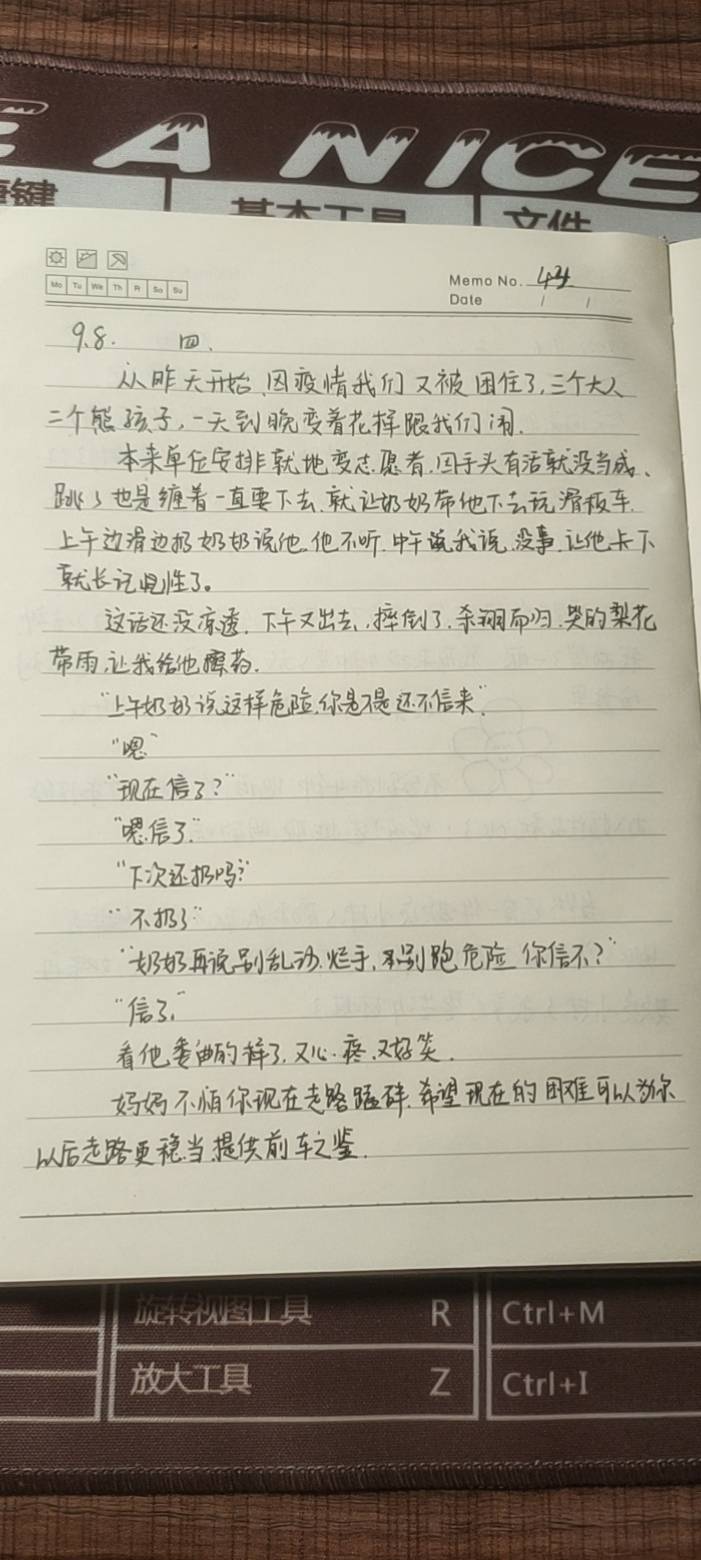 A NICE
键
基本工具
文件
Mo Tu We Th Fr Sa Su
Memo No. 44
Date / /
9.8. 四.
从昨天开始,因疫情我们又被困住了,三个大人
二个熊孩子,一天到晚变着花样跟我们闹.
本来单位安排就地变志愿者,因手头有活就没当成、
跳跳也是缠着一直要下去,就让奶奶带他下去玩滑板车.
上午边滑边扔奶奶说他,他不听.中午说我说,没事,让他卡下
就长记性了。
这话还没凉透,下午又出去,摔倒了,杀翔而归,哭的梨花
带雨,让我给他擦药.
“上午奶奶说这样危险,你是不是还不信来”.
“嗯”
“现在信了?”
“嗯.信了.”
“下次还扔吗?”
“不扔了”
“奶奶再说别乱动.烂手,别跑危险 你信不?”
“信了.”
看他委曲的样子,又心疼,又好笑.
妈妈不怕你现在走路磕碎.希望现在的困难可以为你
以后走路更稳当.提供前车之鉴.
旋转视图工具 R Ctrl+M
放大工具 Z Ctrl+I